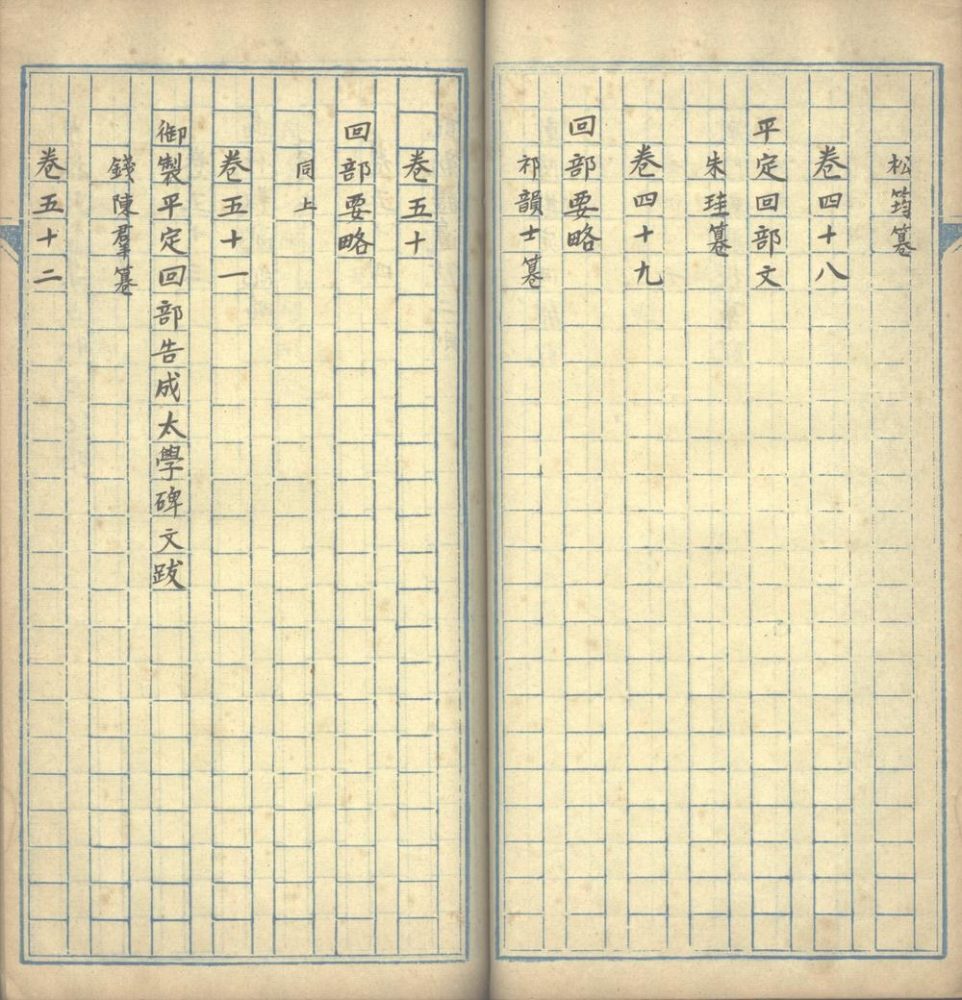 松筠纂
卷四十八
平定回部文
朱珪纂
卷四十九
回部要略
祁韻士纂
卷五十
回部要略
同上
卷五十一
御製平定回部告成太學碑文跋
錢陳羣纂
卷五十二